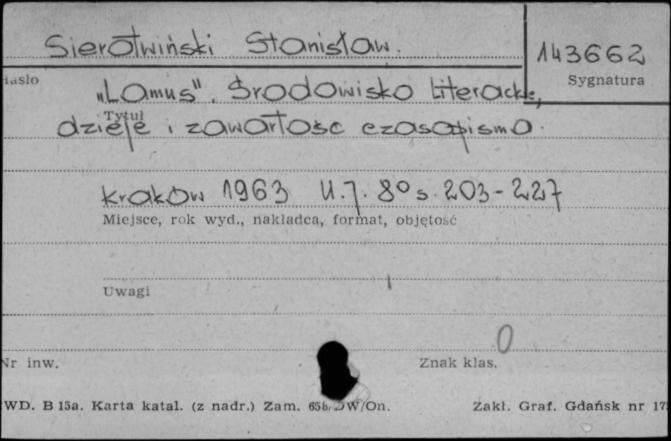 Sierotwiński Stanisław.
143662
Hasło
Sygnatura
„Lamus". Środowisko literackie,
Tytuł
dzieje i zawartość czasopisma.
Kraków 1963 U.J. 8° s. 203-227
Miejsce, rok wyd., nakładca, format, objętość
Uwagi
0
Nr inw.
Znak klas.
WD. B 15a. Karta katal. (z nadr.) Zam. DW/On.
Zakł. Graf. Gdańsk nr